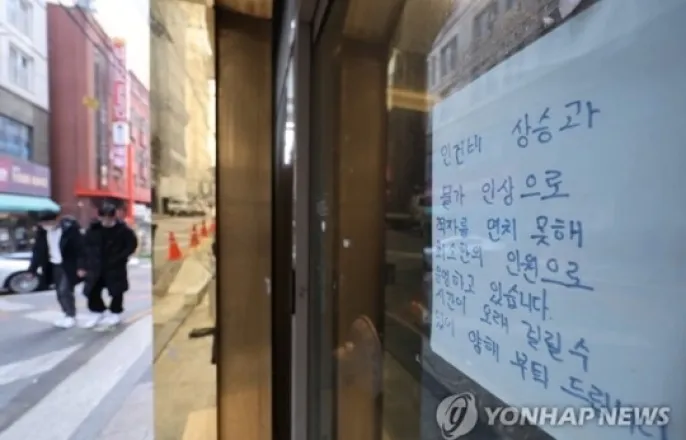 인건비 상승과
물가 인상으로
적자를 면치 못해
최소한의 인원으로
운영하고 있습니다.
시간이 오래 걸릴 수
있어 양해 부탁 드립니다
YONHAP NEWS